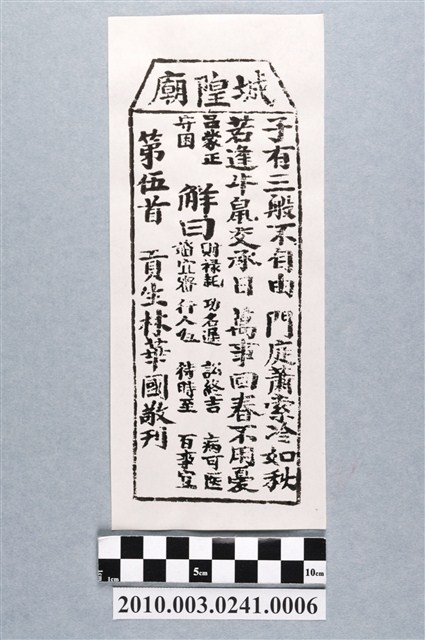 城隍廟
子有三般不自由 門庭蕭索冷如秋
若逢牛鼠交承日 萬事回春不用憂
呂蒙正
守困
解曰
財祿耗 功名遲 訟終吉 病可醫
婚宜審 行人 待時至 百事宜
第伍首 貢生林華國敬刊
1cm 5cm 10cm
2010.003.0241.0006